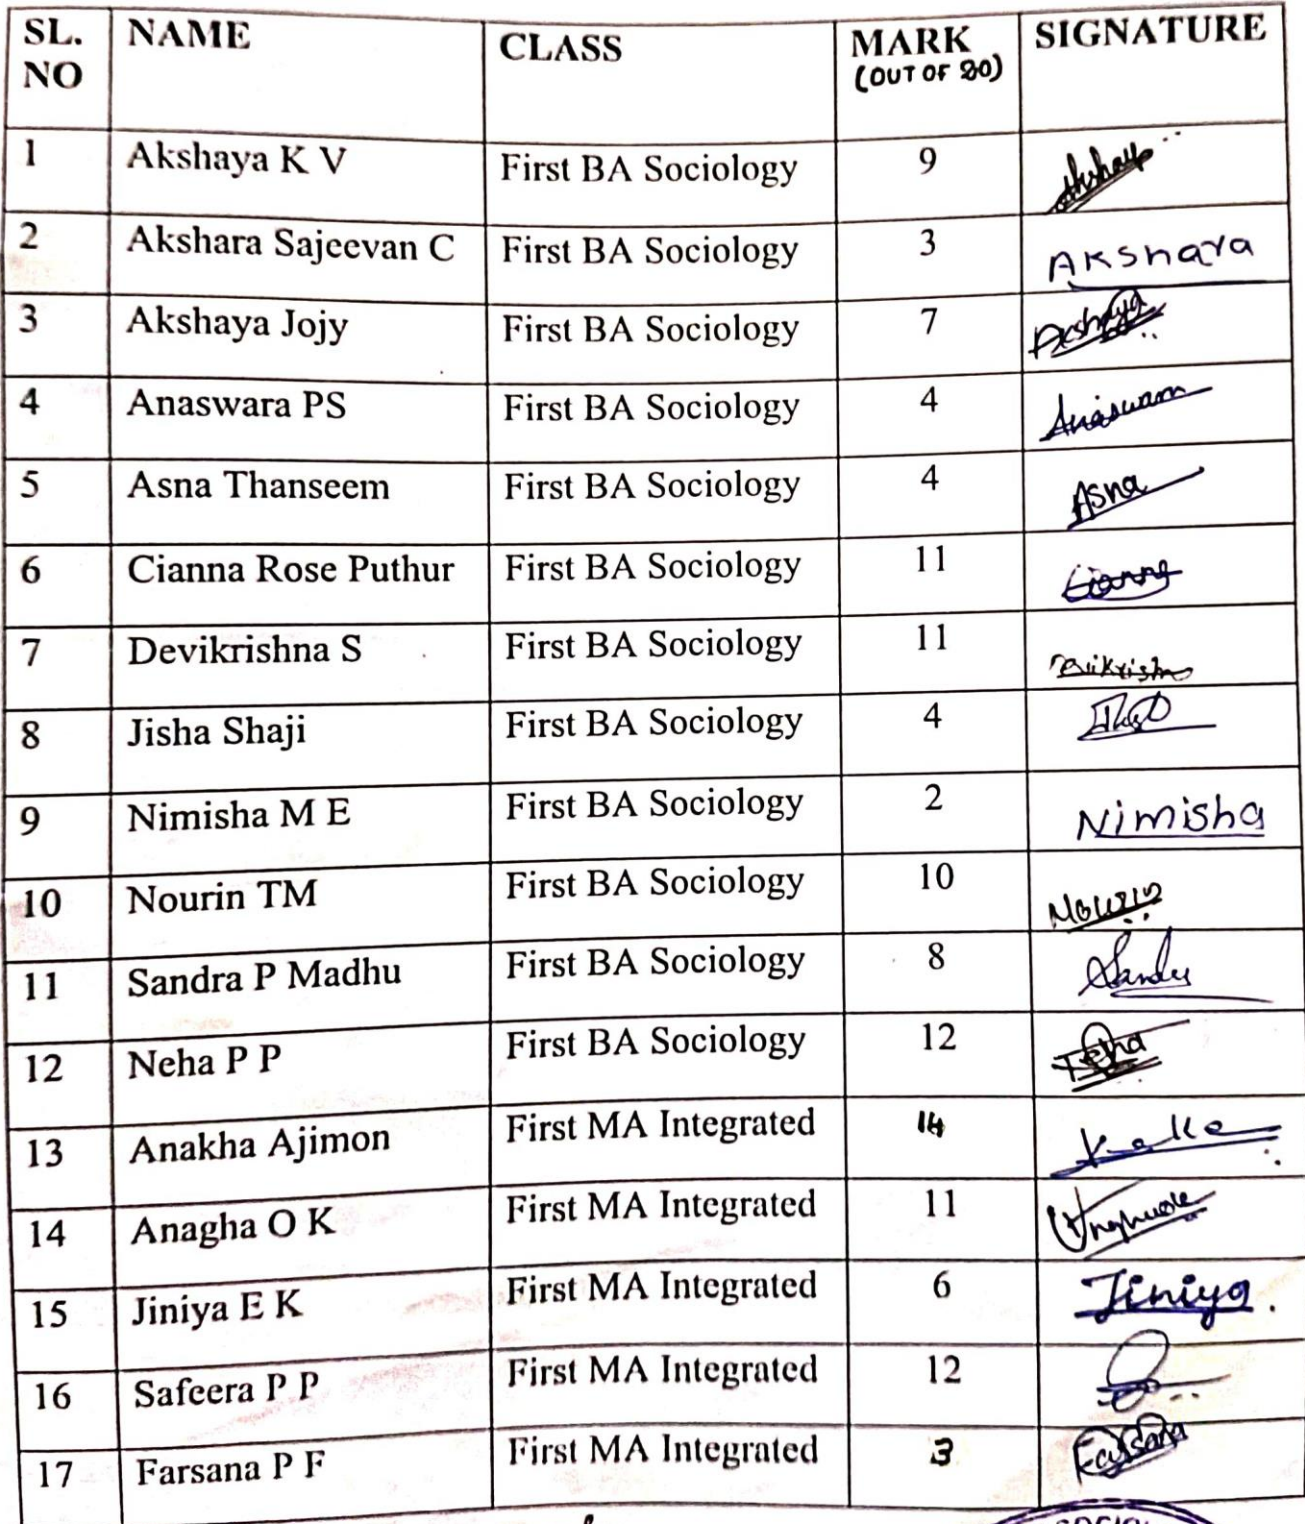 SL. NO NAME CLASS MARK SIGNATURE
(OUT OF 20)
1 Akshaya K V First BA Sociology 9 Akshaya
2 Akshara Sajeevan C First BA Sociology 3 Akshara
3 Akshaya Jojy First BA Sociology 7 Akshaya
4 Anaswara PS First BA Sociology 4 Anaswara
5 Asna Thanseem First BA Sociology 4 Asna
6 Cianna Rose Puthur First BA Sociology 11 Cianna
7 Devikrishna S First BA Sociology 11
8 Jisha Shaji First BA Sociology 4
9 Nimisha M E First BA Sociology 2 Nimisha
10 Nourin TM First BA Sociology 10 Nourin
11 Sandra P Madhu First BA Sociology 8
12 Neha P P First BA Sociology 12
13 Anakha Ajimon First MA Integrated 14
14 Anagha O K First MA Integrated 11
15 Jiniya E K First MA Integrated 6 Jiniya.
16 Safeera P P First MA Integrated 12
17 Farsana P F First MA Integrated 3 Farsana